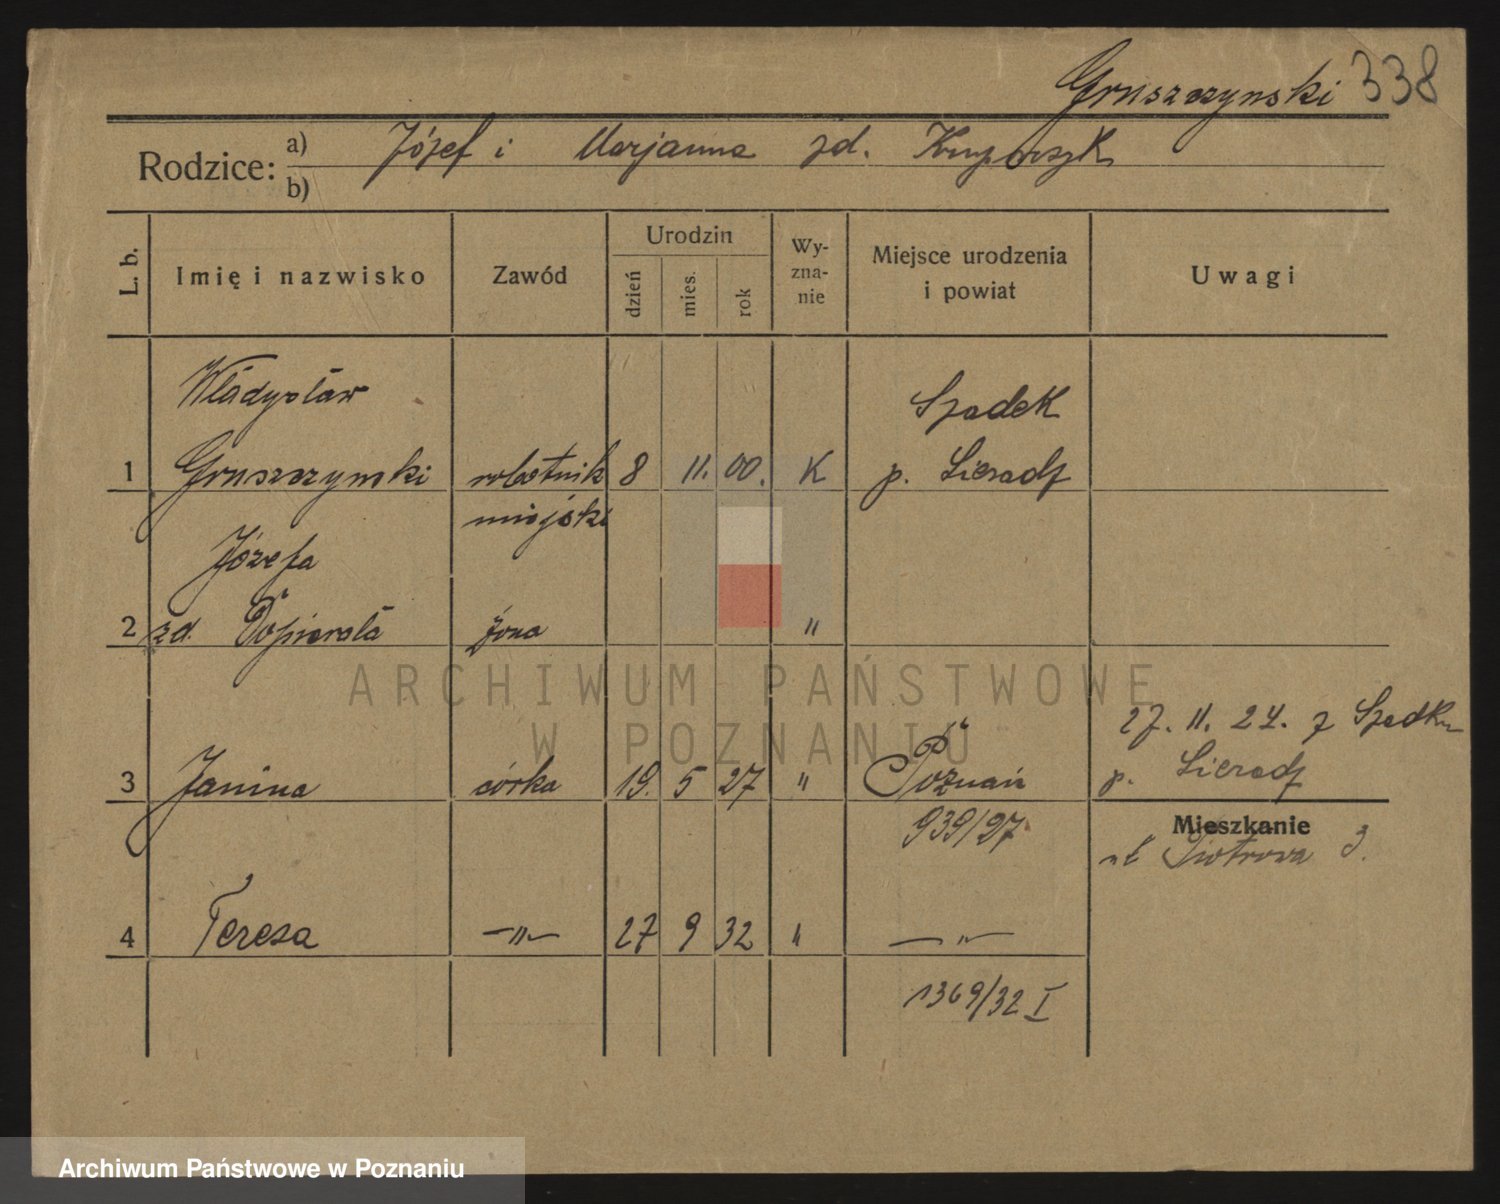 Gruszczynski 338
Rodzice: a) Józef i Marjanna zd.
b)
L. b. Imię i nazwisko Zawód Urodzin dzień mies. rok Wy-zna-nie Miejsce urodzenia i powiat Uwagi
Władysław Szadek
1 Gruszczynski robotnik 8 11. 00. K p. Sieradz
miejski
Józefa
2 zd. Dopierała żona "
ARCHIWUM PAŃSTWOWE
W POZNANIU
27. 11. 24. z Szadku
3 Janina córka 19. 5 27 " Poznań p. Sieradz
939/27 Mieszkanie
Piotrowa 3.
4 Teresa —"— 27 9 32 " —"—
1369/32 I
Archiwum Państwowe w Poznaniu